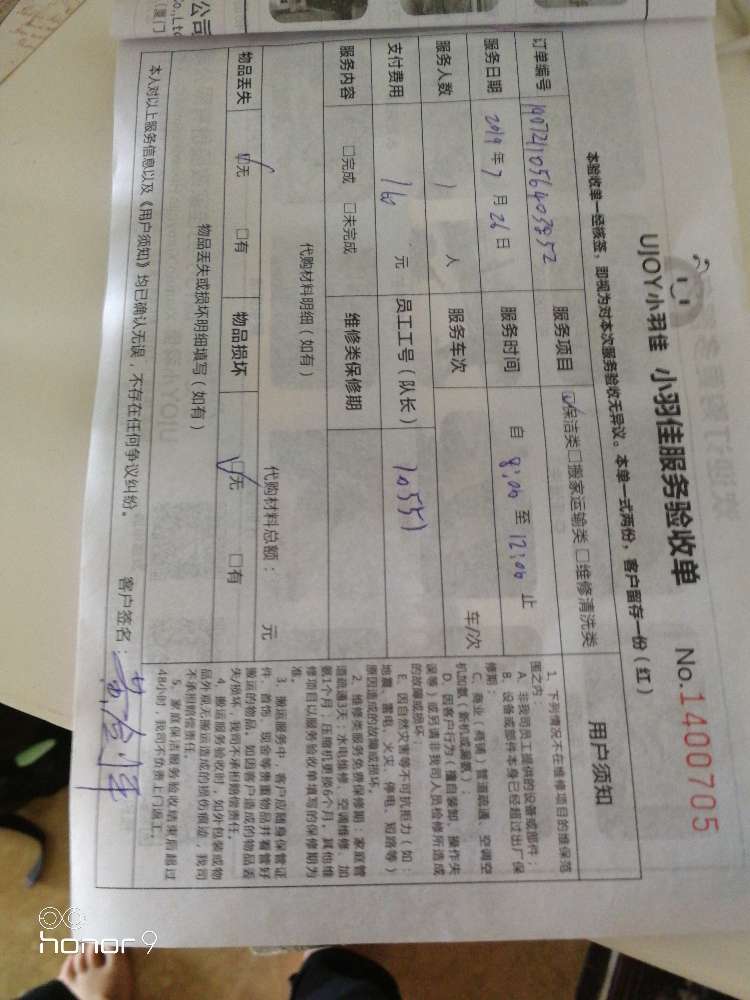 UJOY小羽佳 小羽佳服务验收单 No.1400705
本验收单一经核签，即视为对本次服务验收无异议。本单一式两份，客户留存一份（红）
订单编号 服务项目 ☑保洁类 □搬家运输类 □维修清洗类
服务日期 2019年7月26日 服务时间 自 8:00 至 12:00 止
服务人数 1 人 服务车次 车/次
支付费用 160 元 员工工号（队长） 10551
服务内容 □完成 □未完成 维修类保修期
代购材料明细（如有）
代购材料总额： 元
物品丢失 ☑无 □有 物品损坏 ☑无 □有
物品丢失或损坏明细填写（如有）
本人对以上服务信息以及《用户须知》均已确认无误，不存在任何争议纠纷。 客户签名：
用户须知
1、下列情况不在维修项目的维保范
围之内：
A、非我司员工提供的设备或部件；
B、设备或部件本身已经超过出厂保
修期；
C、商业（商铺）管道疏通、空调空
机加氨（新机或漏氨）；
D、因客户行为（擅自装卸、操作失
误等）或另请非我司人员检修所造成
的故障或损坏；
E、因自然灾害等不可抗拒力（如：
地震、雷电、火灾、停电、短路等）
原因造成的故障或损坏。
2、维修类服务免费保修期：家庭管
道疏通3天，水电维修、空调维修、加
氨1个月；压缩机更换6个月，其他维
修项目以服务验收单填写的保修期为
准。
3、搬运服务中，客户应随身保管证
件、首饰、现金等贵重物品并看管好
搬运的物品。如因客户造成的物品丢
失/损坏，我司不承担赔偿责任。
4、搬运服务验收时，如外包装或物
品外观无搬运造成的损伤痕迹，我司
不承担赔偿责任。
5、家庭保洁服务验收结束后超过
48小时，我司不负责上门返工。
公司
Co.,Ltd
（厦门
honor 9